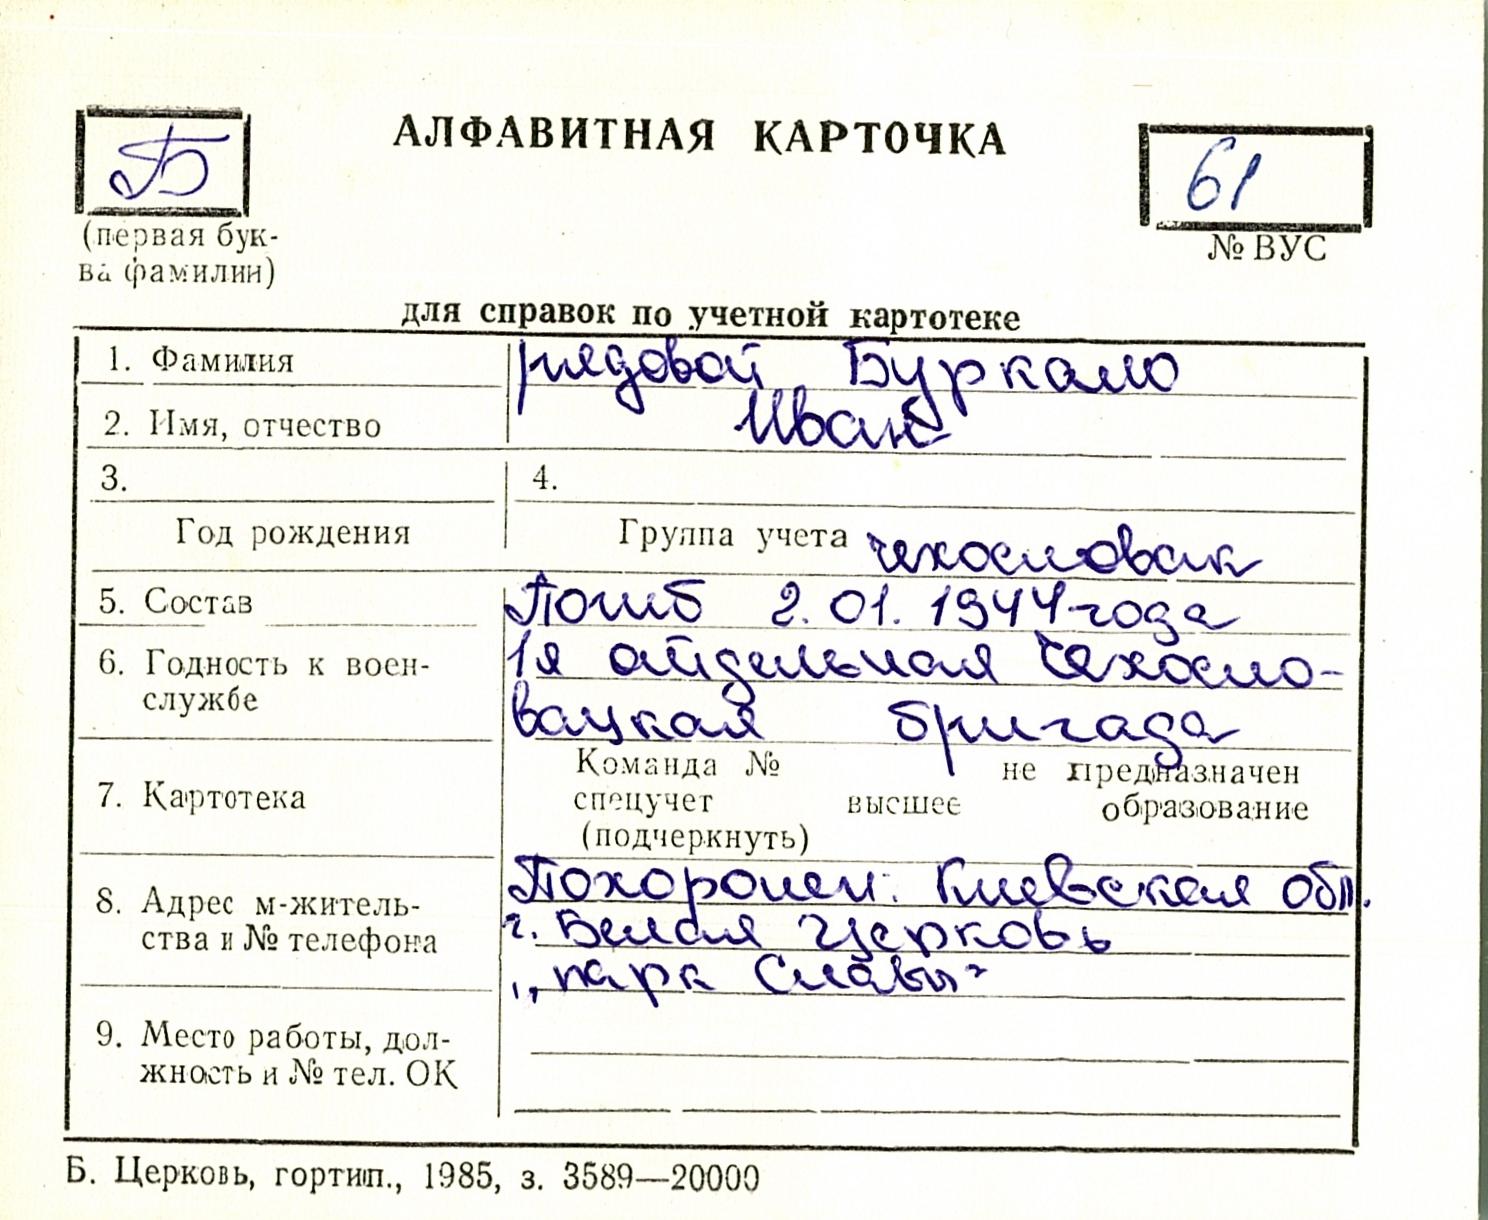 Б
АЛФАВИТНАЯ КАРТОЧКА
61
(первая бук-
ва фамилии)
№ ВУС
для справок по учетной картотеке
1. Фамилия
рядовой Буркало
2. Имя, отчество
Иван
3.
4.
Год рождения
Группа учета чехословак
5. Состав
Погиб 2.01.1944 года
6. Годность к воен-
службе
1я отдельная Чехосло-
вацкая бригада
7. Картотека
Команда № не предназначен
спецучет высшее образование
(подчеркнуть)
8. Адрес м-житель-
ства и № телефона
Похоронен: Киевская обл.
г. Белая Церковь
„парк Славы"
9. Место работы, дол-
жность и № тел. ОК
Б. Церковь, гортип., 1985, з. 3589—20000